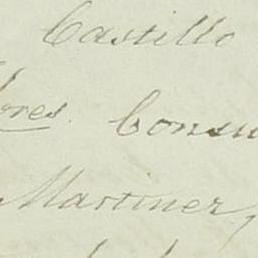 Castillo
ores. Consu
Martinez